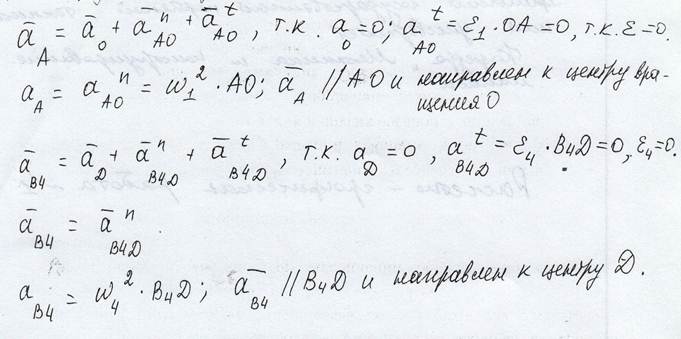 a̅_A = a̅_O + a̅ⁿ_AO + a̅ᵗ_AO, т.к. a_O = 0; a_AOᵗ = ε₁ · OA = 0, т.к. ε = 0.
a_A = a_AOⁿ = ω₁² · AO; a̅_A // AO и направлен к центру вра-
щения O
a̅_B4 = a̅_D + a̅ⁿ_B4D + a̅ᵗ_B4D, т.к. a_D = 0, aᵗ_B4D = ε₄ · B₄D = 0, ε₄ = 0.
a̅_B4 = a̅ⁿ_B4D.
a_B4 = ω₄² · B₄D; a̅_B4 // B₄D и направлен к центру D.